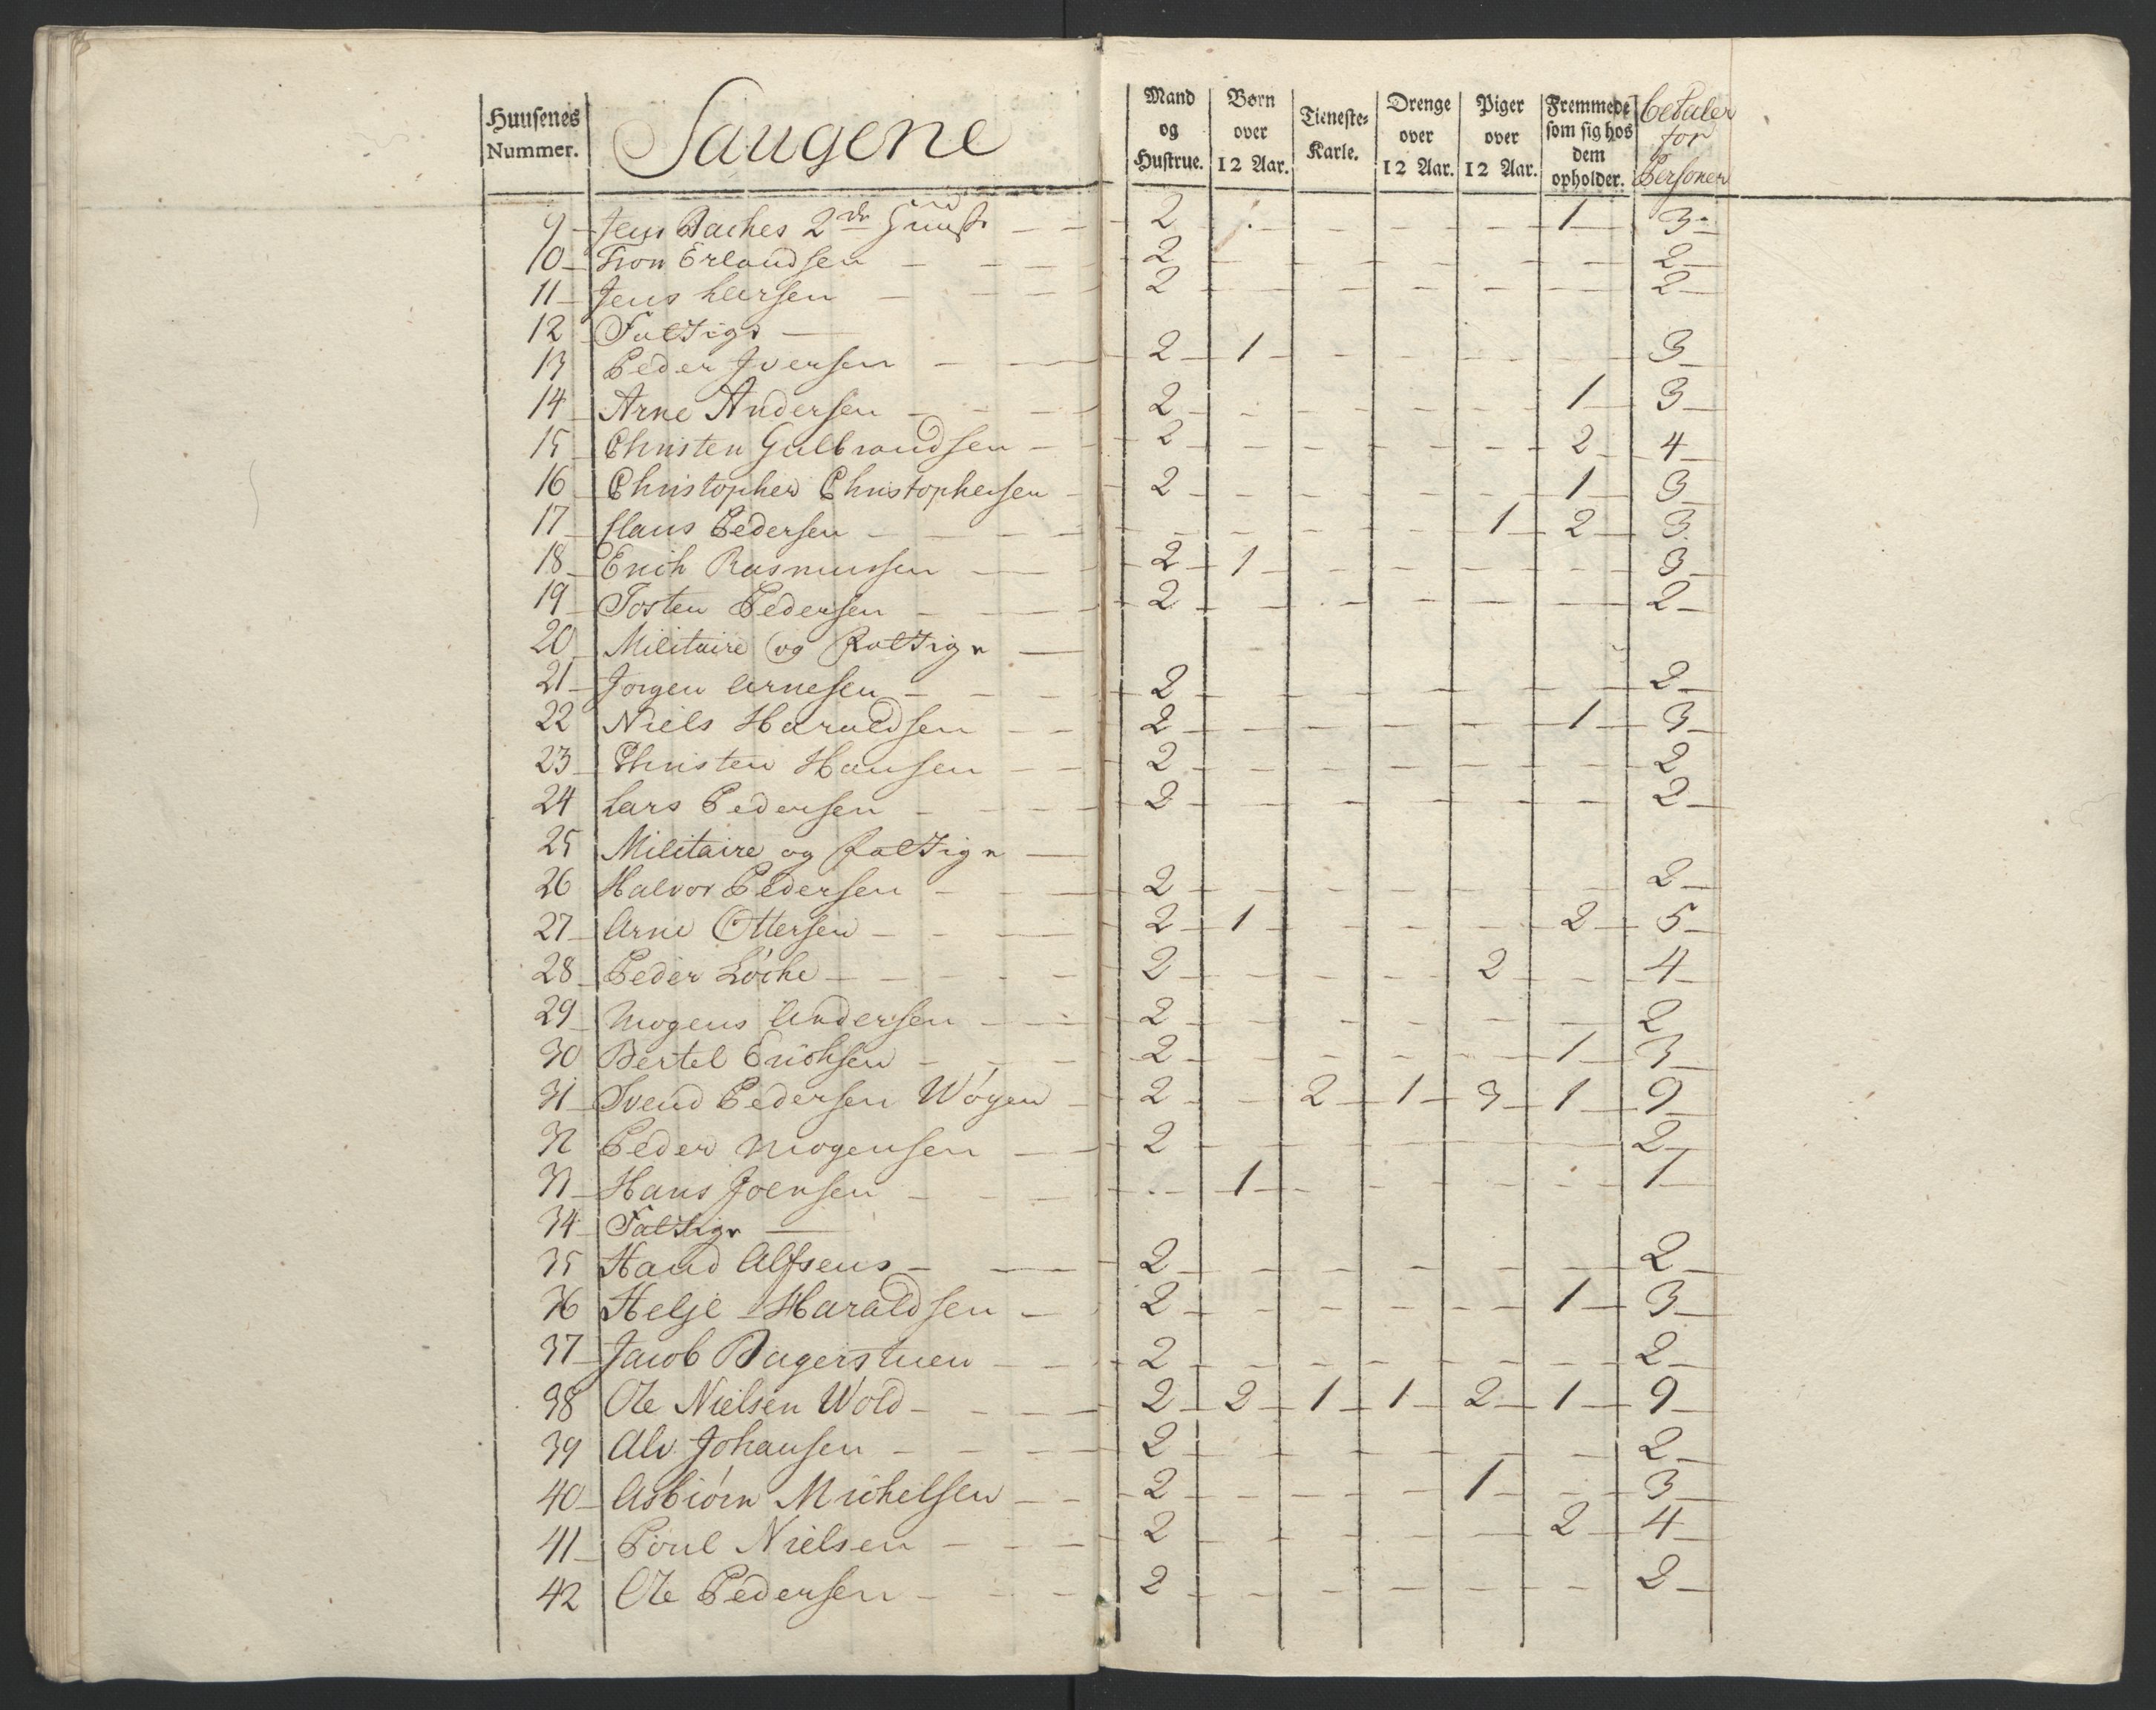 Huusenes Nummer. Saugene Mand og Hustrue. Børn over 12 Aar. Tieneste-Karle. Drenge over 12 Aar. Piger over 12 Aar. Fremmede som sig hos dem opholder. betaler for Personer
9 Jens Baches 2de Huus 2 1 3
10 Tron Erlandsen 2 2
11 Jens Larsen 2 2
12 Fattige
13 Peder Iversen 2 1 3
14 Arne Andersen 2 1 3
15 Christen Gulbrandsen 2 2 4
16 Christopher Christophersen 2 1 3
17 Claus Pedersen 1 2 3
18 Erich Rasmussen 2 1 3
19 Tosten Pedersen 2 2
20 Militaire og Fattige
21 Jørgen Arnesen 2 2
22 Niels Haraldsen 2 1 3
23 Christen Hansen 2 2
24 Lars Pedersen 2 2
25 Militaire og fattige
26 Halvor Pedersen 2 2
27 Arne Ottersen 2 1 2 5
28 Peder Löche 2 2 4
29 Mogens Andersen 2 2
30 Bertel Erichsen 2 1 3
31 Svend Pedersen Wøyen 2 2 1 3 1 9
32 Peder Mogensen 2 2
33 Hans Joensen 1 1
34 Fattige
35 Haud Alfsens 2 2
36 Helje Haraldsen 2 1 3
37 Jacob Bagerstuen 2 2
38 Ole Nielsen Wold 2 2 1 1 2 1 9
39 Alv Johansen 2 2
40 Asbiörn Michelsen 2 1 3
41 Poul Nielsen 2 2 4
42 Ole Pedersen 2 2